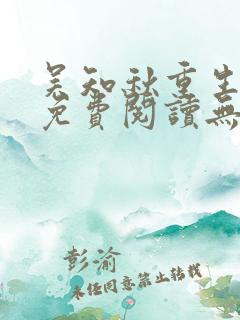 吴知秋重生
免費閱讀無
彭渝
未经同意禁止转载